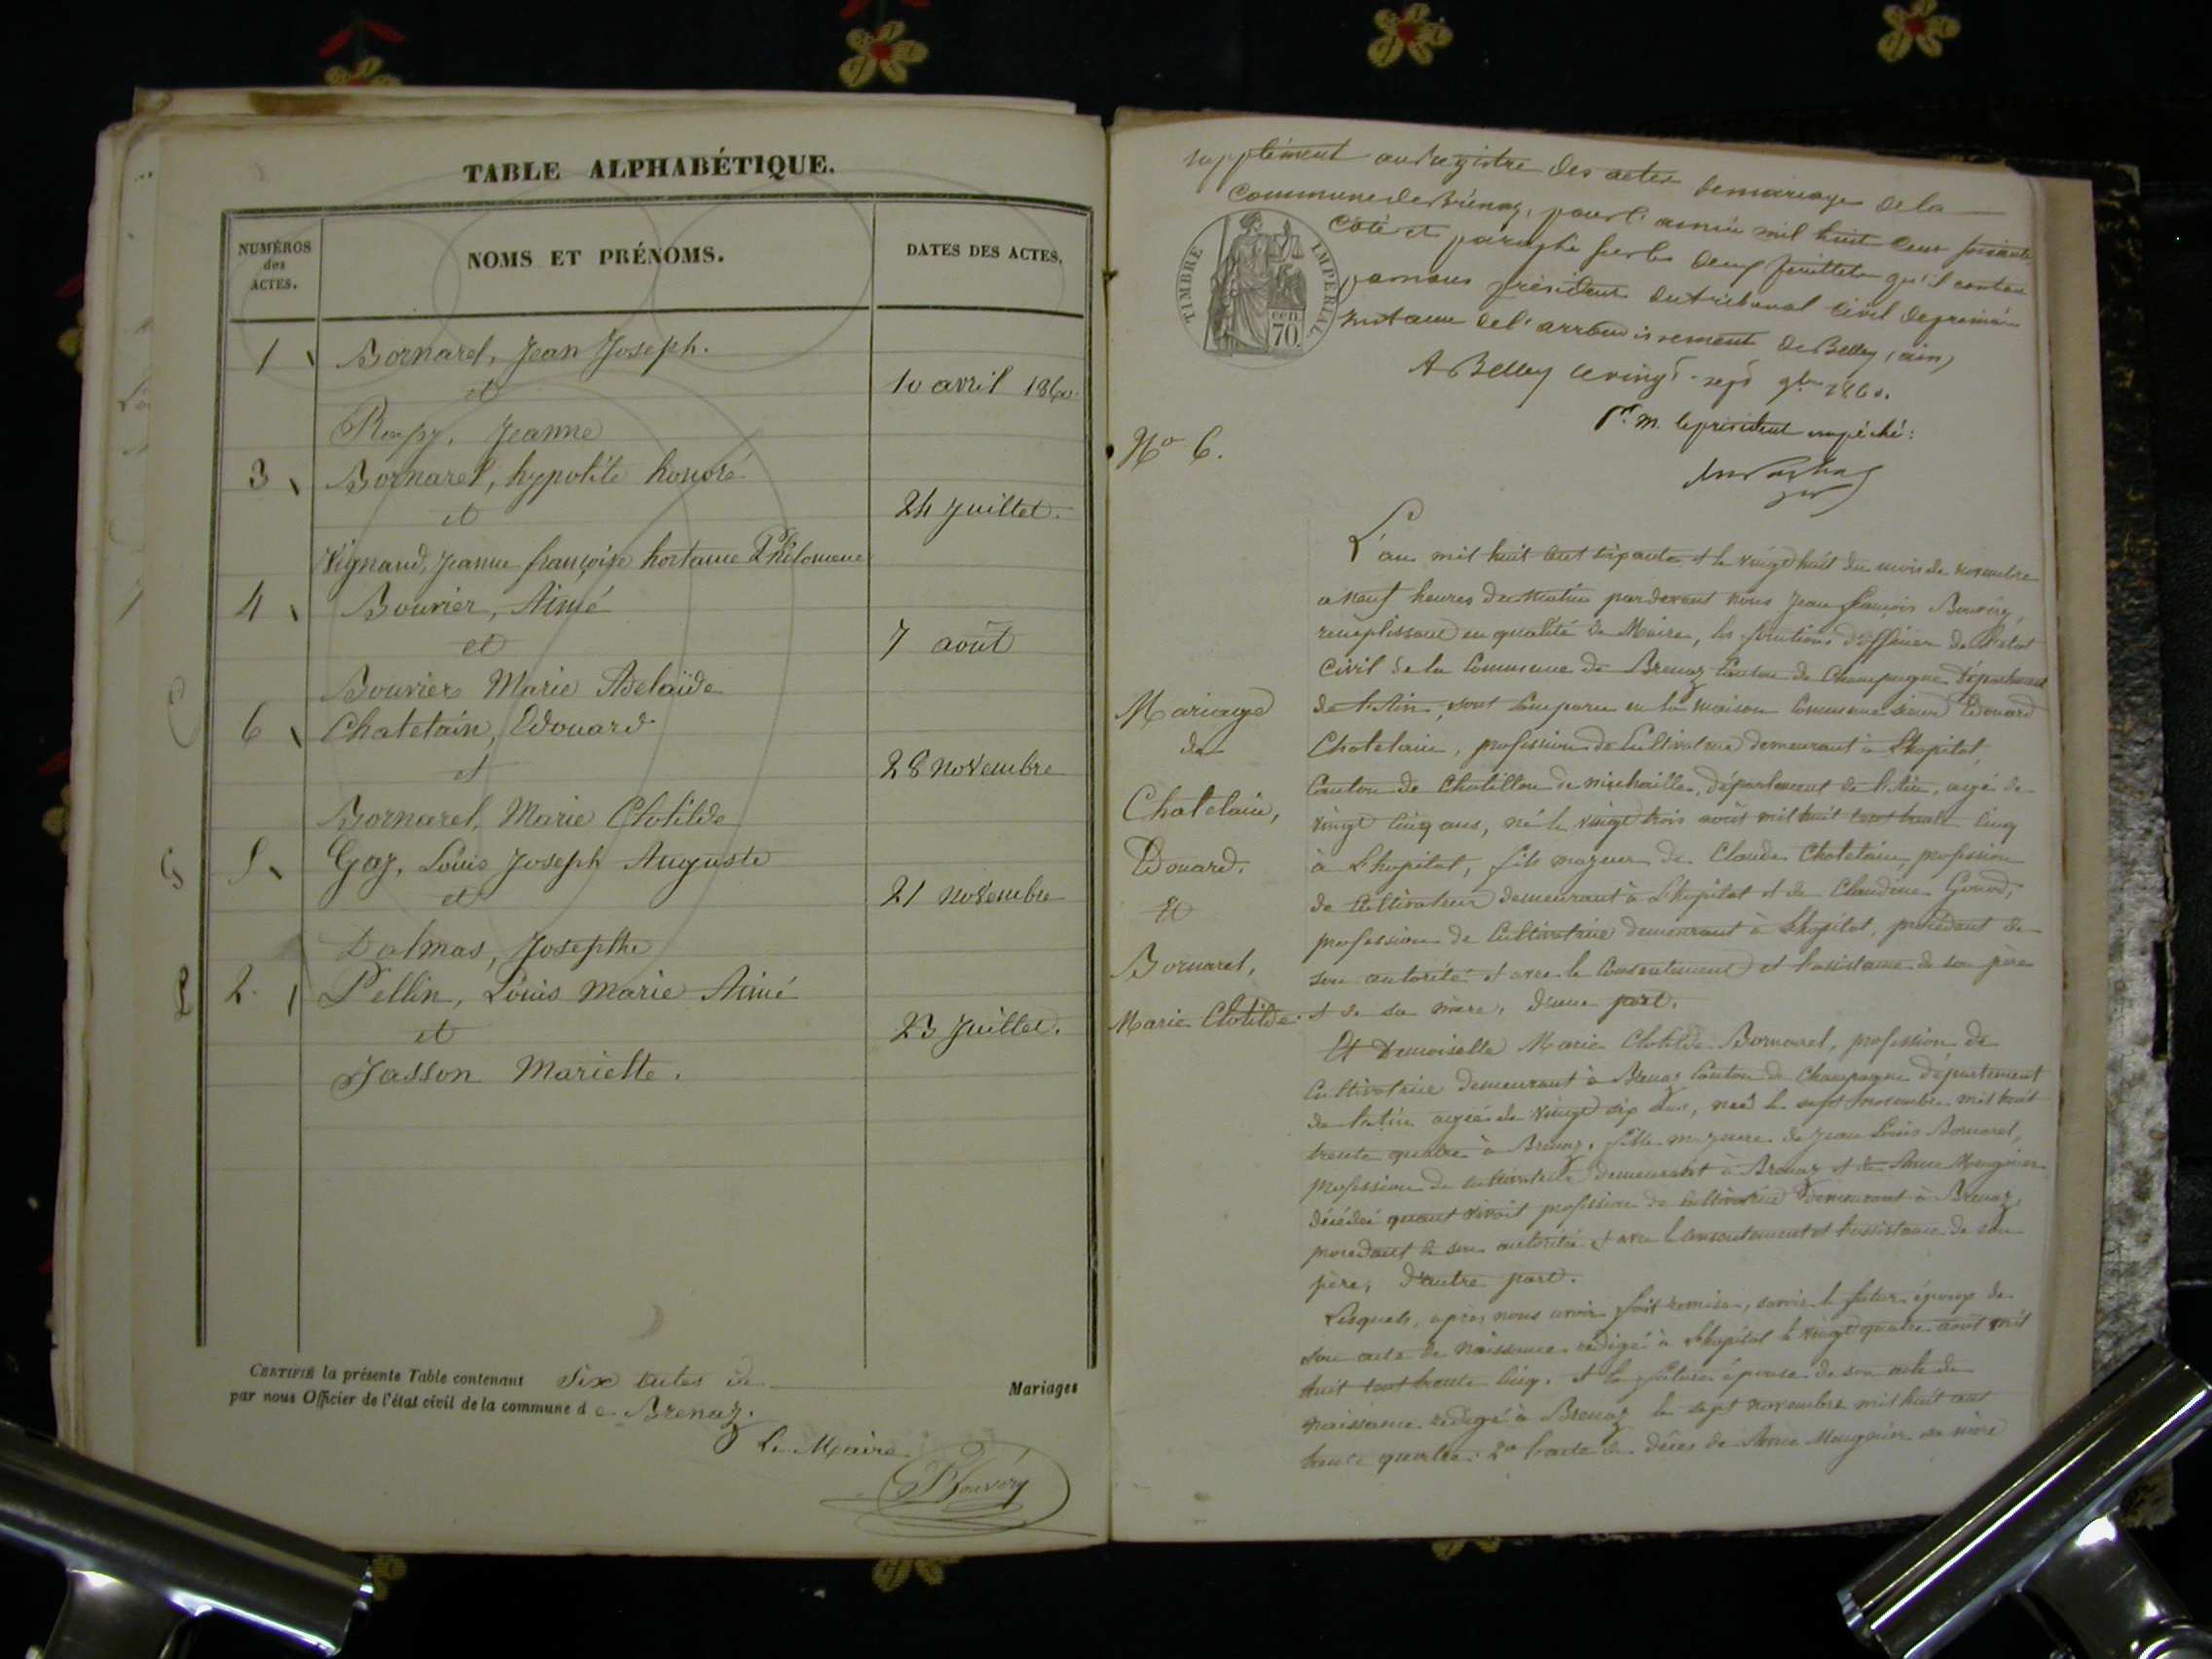 TABLE ALPHABÉTIQUE.
NUMÉROS des ACTES.
NOMS ET PRÉNOMS.
DATES DES ACTES.
1 Bornarel, Jean Joseph.
et
10 avril 1860
Jeanne
3 Bornarel, hypolite honoré
et
24 Juillet.
Vignand, Jeanne françoise hortance Philomene
4 Bouvier, Aimé
et
7 août
Bouvier Marie Adelaïde
C
6 Chatelain, Edouard
et
28 Novembre
Bornarel, Marie Clotilde
G 5 Goy, Louis Joseph Auguste
et
21 Novembre
Dalmas, Josephte
P 2. Pellin, Louis Marie Aimé
et
23 Juillet.
Jasson Mariette.
CERTIFIÉ la présente Table contenant Six actes de Mariages
par nous Officier de l'état civil de la commune de Brenaz.
Le Maire
Bouvery
supplément au registre des actes de mariage de la
commune de Brénaz, pour l'année mil huit cent soixante
coté et paraphé sur les deux feuillets qu'il contient
par nous président du tribunal civil de première
instance de l'arrondissement de Belley (ain)
A Belley le vingt-sept 9bre 1860.
Pr. M. le président empêché:
TIMBRE IMPÉRIAL
70. cen
No 6.
Mariage
de
Chatelain,
Edouard.
Et
Bornarel,
Marie Clotilde.
L'an mil huit cent soixante et le vingt huit du mois de novembre
a neuf heures du matin pardevant nous Jean François Bouvery,
remplissant en qualité de Maire, les fonctions d'officier de l'état
civil de la Commune de Brenaz Canton de Champagne Département
de l'Ain, sont Comparu en la maison Commune sieur Edouard
Chatelain, profession de Cultivateur demeurant à L'hopital,
Canton de Chatillon de michaille, département de l'Ain, agé de
vingt cinq ans, né le vingt trois août mil huit cent trente cinq
à L'hopital, fils mageur de Claude Chatelain, profession
de Cultivateur demeurant à L'hopital et de Claudine Gonod,
profession de Cultivatrice demeurant à L'hopital, procédant de
son autorité et avec le Consentement et l'assistance de son père
et de sa mère, d'une part.
Et Demoiselle Marie Clotilde Bornarel, profession de
Cultivatrice demeurant à Brenaz Canton de Champagne département
de l'Ain agée de vingt six ans, née le sept novembre mil huit
trente quatre à Brenaz, fille mageure de Jean Louis Bornarel,
profession de cultivateur demeurant à Brenaz et de Anne Mugnier
décédée quant vivait profession de cultivatrice demeurant à Brenaz,
procédant de son autorité et avec le consentement et l'assistance de son
père, d'autre part.
Lesquels, après nous avoir fait remise, savoir le futur époux de
son acte de naissance rédigé à L'hopital le vingt quatre août mil
huit cent trente cinq. et la future épouse de son acte de
naissance rédigé à Brenaz le sept novembre mil huit cent
trente quatre: 2° l'acte de décès de Anne Mugnier sa mère